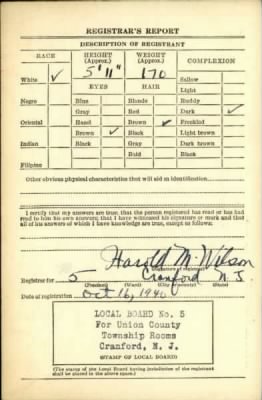 REGISTRAR'S REPORT
DESCRIPTION OF REGISTRANT
RACE HEIGHT (Approx.) WEIGHT (Approx.) COMPLEXION
White ✓ 5' 11" 170 Sallow
EYES HAIR Light
Negro Blue Blonde Ruddy
Gray Red Dark ✓
Oriental Hazel Brown ✓ Freckled
Brown ✓ Black Light brown
Indian Black Gray Dark brown
Bald Black
Filipino
Other obvious physical characteristics that will aid in identification
I certify that my answers are true; that the person registered has read or has had
read to him his own answers; that I have witnessed his signature or mark and that
all of his answers of which I have knowledge are true, except as follows:
Harold M. Wilson
(Signature of registrar)
Registrar for 5 Cranford N. J.
(Precinct) (Ward) (City or county) (State)
Date of registration Oct 16, 1940
LOCAL BOARD No. 5
For Union County
Township Rooms
Cranford, N. J.
(STAMP OF LOCAL BOARD)
(The stamp of the Local Board having jurisdiction of the registrant
shall be placed in the above space.)